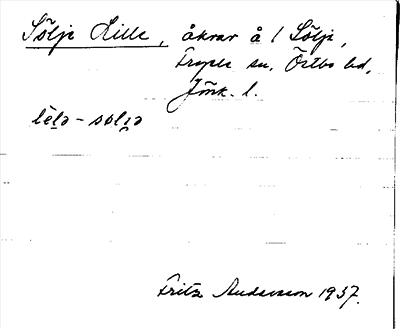 Sölje Lille, åkrar å 1 Sölje,
sn. Östbo hd,
Jönk. l.
lèlə - sølja
Fritz Andersson 1937.